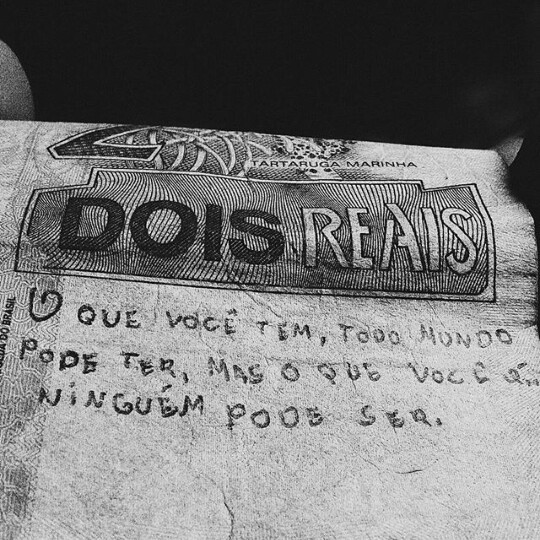 TARTARUGA MARINHA
DOIS REAIS
O QUE VOCÊ TEM, TODO MUNDO
PODE TER, MAS O QUE VOCÊ É...
NINGUÉM PODE SER.
DO BRASIL